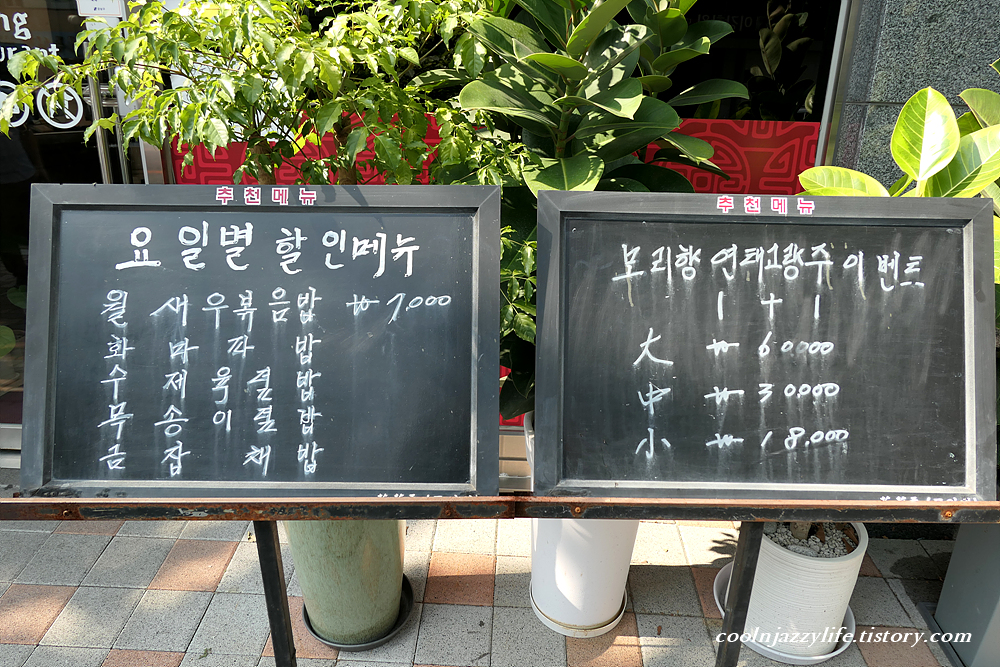 추천메뉴
요일별 할인메뉴
월 새우볶음밥 ₩7,000
화 마파밥
수 제육덮밥
목 송이덮밥
금 잡채밥
추천메뉴
모리향 연태고량주 이벤트
1+1
大 ₩60.000
中 ₩30.000
小 ₩18.000
coolnjazzylife.tistory.com